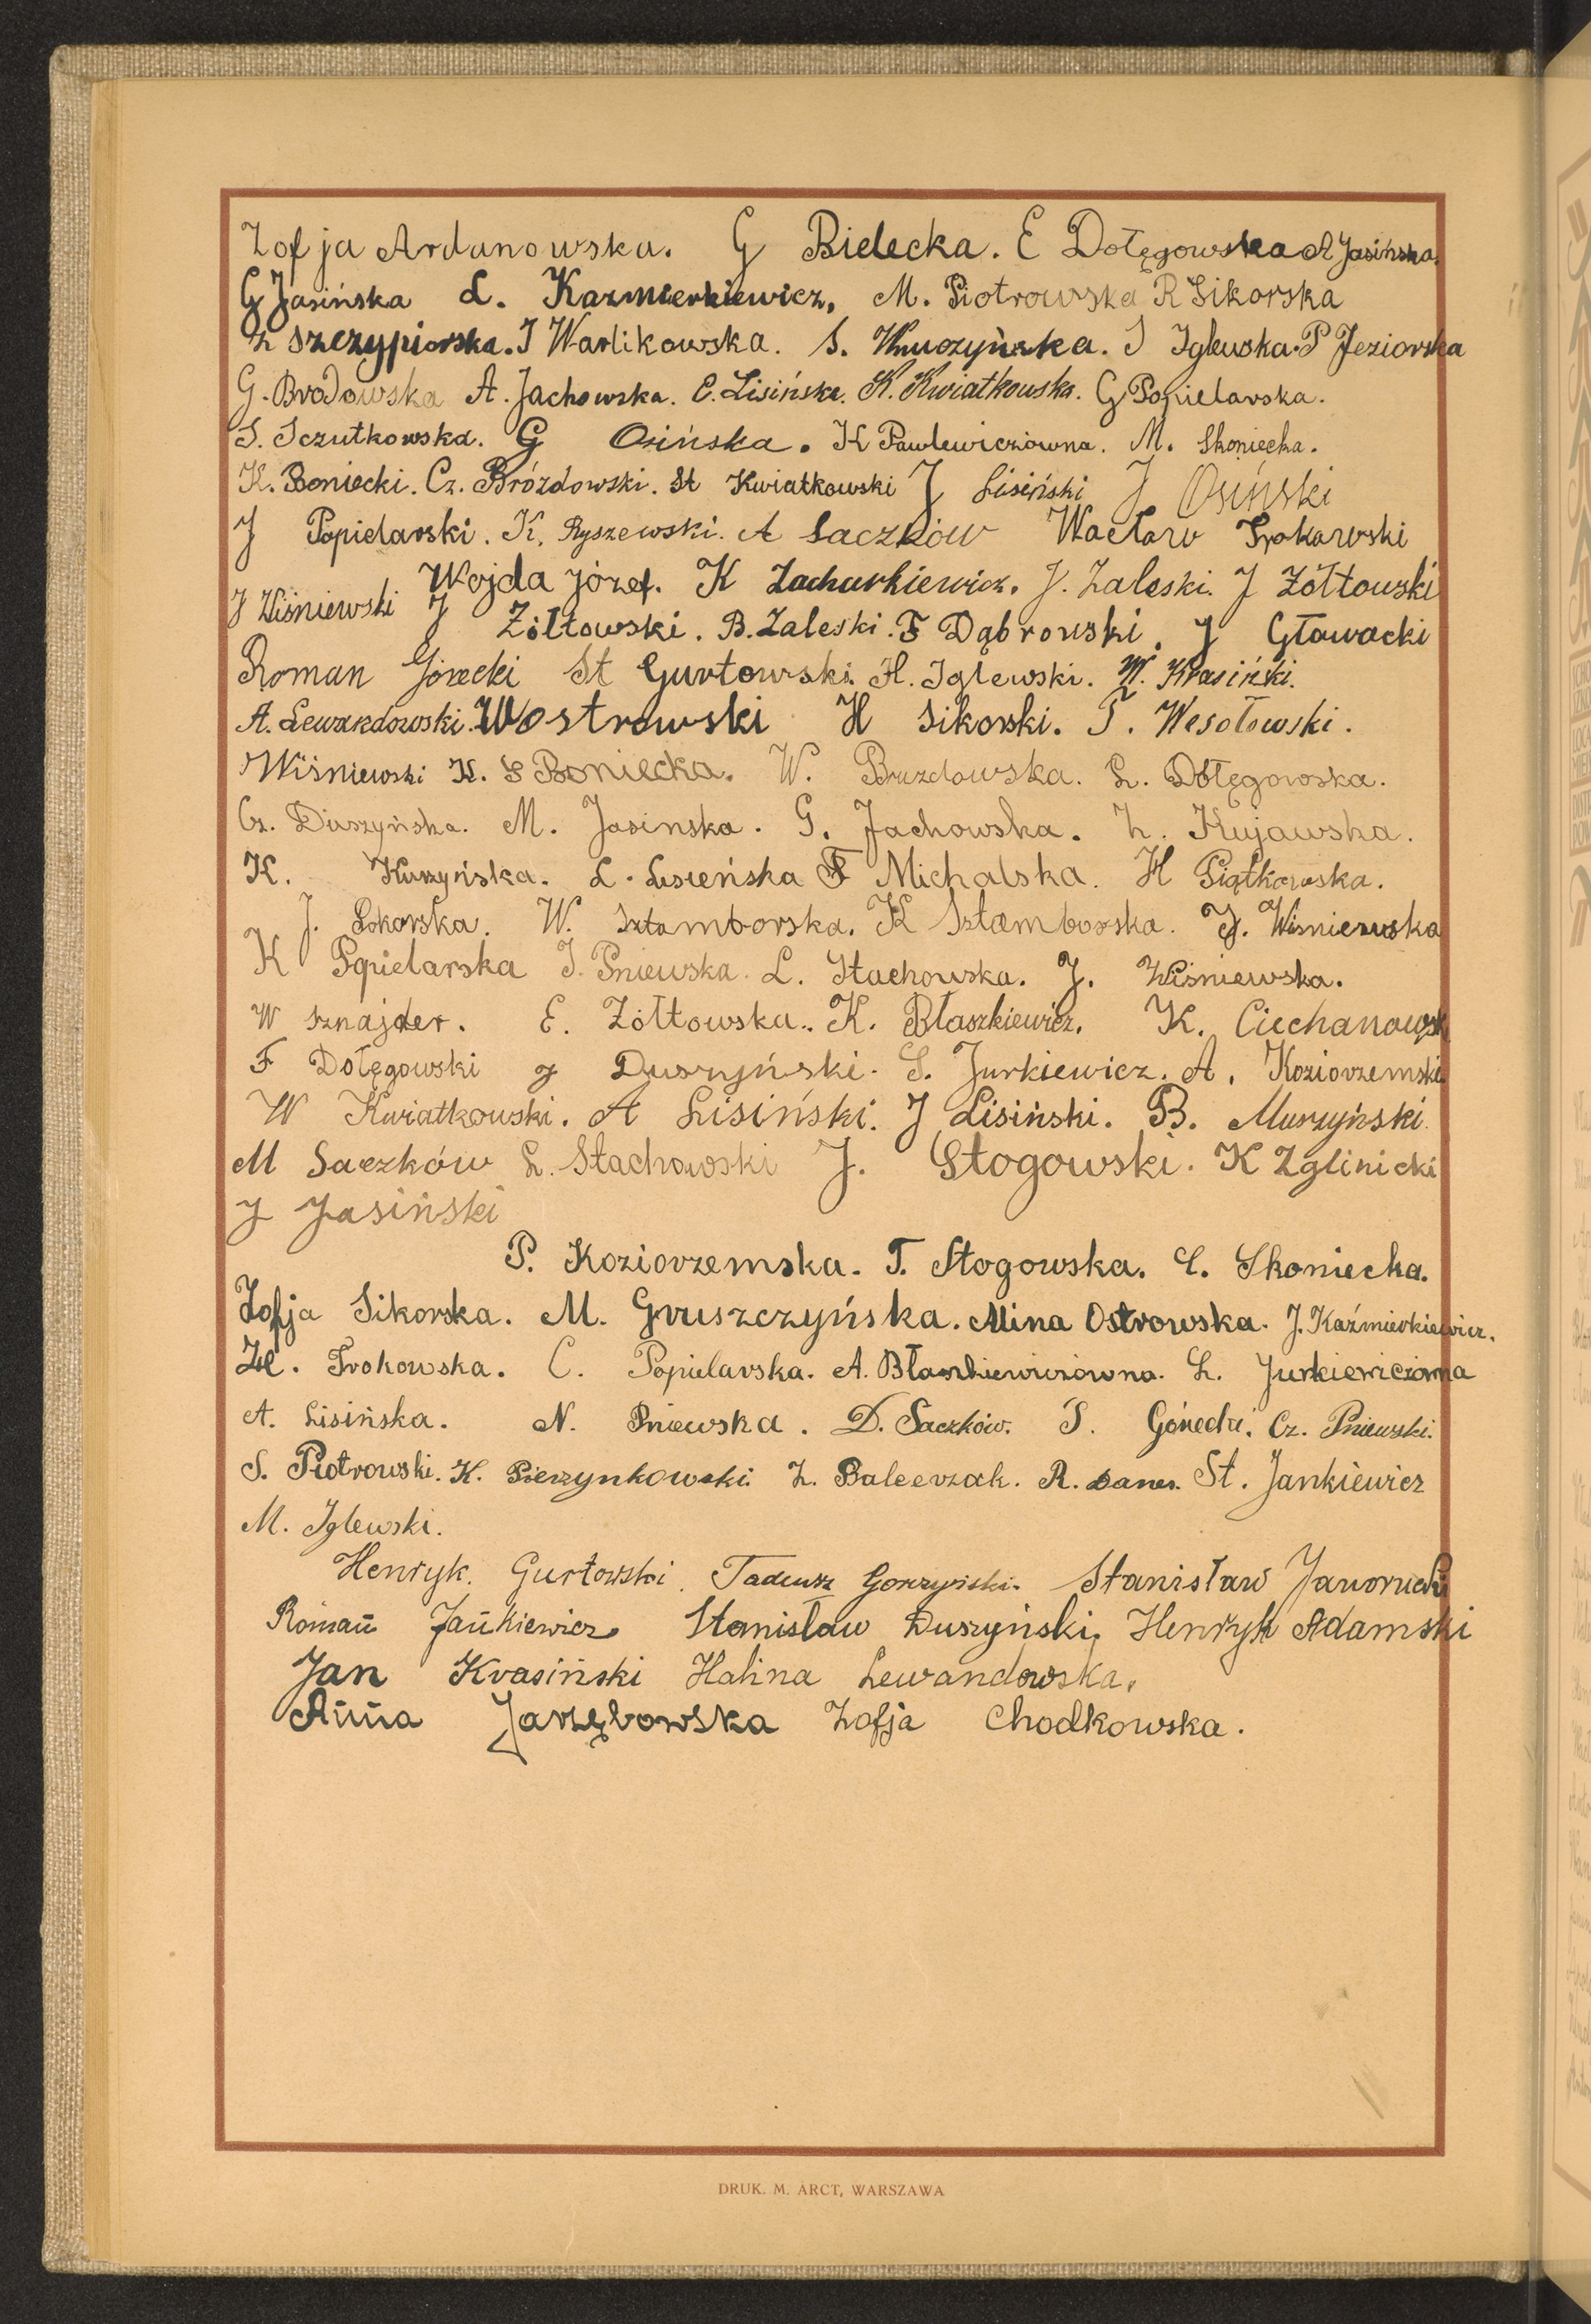 Zofja Ardanowska. G Bielecka. E Dołęgowska A Jasińska.
G Jasińska L. Kazmierkiewicz, M. Piotrowska R Sikorska
Z Szczypiorska. J Warlikowska. S. J Iglewska. P Jeziorska
G. Brodowska A. Jachowska. E. Lisińska. K. Kwiatkowska. G Popielarska.
S. Sczutkowska. G Osińska. K Pawlewiczówna. M. Skoniecka.
K. Boniecki. Cz. Bróżdowski. St Kwiatkowski J Lisiński J Osiński
J Popielarski. K. Ryszewski. A Saczków Wacław Trokowski
Wojda Józef. K Zacharkiewicz. J. Zaleski. J Żółtowski
J Wiśniewski J Żółtowski. B. Zaleski. F Dąbrowski, J Gławacki
Roman Górecki St Gurtowski. H. Iglewski. W. Krasiński.
A. Lewandowski. W Ostrowski H Sikorski. T. Wesołowski.
Wiśniewski K. S Boniecka. W. Bruzdowska. L. Dołęgowska.
Cz. Duszyńska. M. Jasinska. G. Jachowska. Z. Kujawska.
K. Kurzyńska. L. Lisieńska F Michalska. H Piątkowska.
J. Sikorska. W. Sztamborska. K Sztamborska. J. Wiśniewska
K Popielarska J. Pniewska. L. Stachowska. J. Wiśniewska.
W Sznajder. E. Żółtowska. K. Błaszkiewicz. K. Ciechanowsk
F Dołęgowski J Duszyński. S. Jurkiewicz. A. Koziorzemski
W Kwiatkowski. A Lisiński. J Lisiński. B. Murzyński.
M Saczków L. Stachowski J. Stogowski. K Zglinicki
J Jasiński
P. Koziorzemska. T. Stogowska. L. Skoniecka.
Zofja Sikorska. M. Gruszczyńska. Alina Ostrowska. J. Kaźmierkiewicz.
H. Trokowska. C. Popielarska. A. Błaszkiewiczówna. L. Jurkiewiczówna
A. Lisińska. N. Pniewska. D. Saczków. S. Górecki. Cz. Pniewski.
S. Piotrowski. K. Pierzynkowski. Z. Balcerzak. R. Danes. St. Jankiewicz
M. Iglewski.
Henryk Gurtowski. Tadeusz Gorzyński. Stanisław Jaworucki
Roman Jankiewicz Stanisław Duszyński, Henryk Adamski
Jan Krasiński Halina Lewandowska,
Anna Jarzębowska Zofja Chodkowska.
DRUK. M. ARCT, WARSZAWA